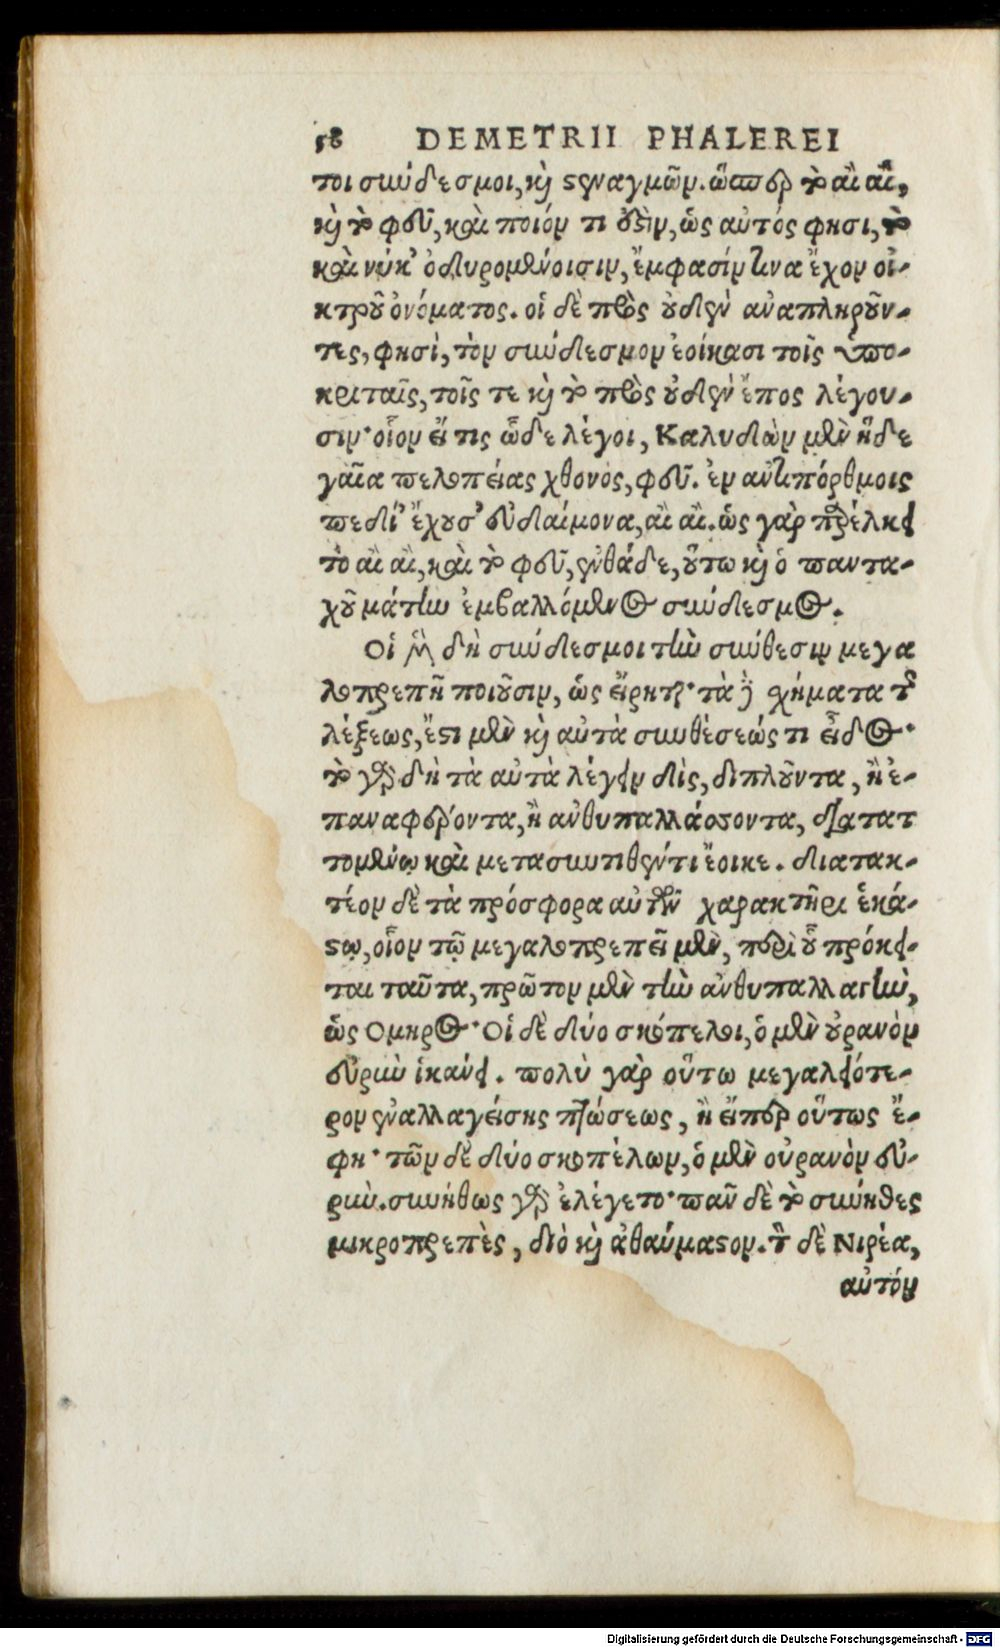 58 DEMETRII PHALEREI
τοι σύνδεσμοι, καὶ στεναγμῶν. ὥσπερ τὸ αἲ αἲ,
καὶ τὸ φεῦ, καὶ ποιόν τι ἐστὶν, ὡς αὐτός φησι, τὸ
καὶ νύκ’ ὀδυρομένοισιν, ἔμφασίν τινα ἔχον οἰ-
κτροῦ ὀνόματος. οἱ δὲ πρὸς οὐδὲν ἀναπληροῦν-
τες, φησὶ, τὸν σύνδεσμον ἐοίκασι τοῖς ὑπο-
κριταῖς, τοῖς τε καὶ τὸ πρὸς οὐδὲν ἔπος λέγου-
σιν· οἷον εἴ τις ὧδε λέγοι, Καλυδὼν μὲν ἥδε
γαῖα πελοπείας χθονὸς, φεῦ. ἐν ἀντιπόρθμοις
πεδί’ ἔχουσ’ εὐδαίμονα, αἲ αἲ. ὡς γὰρ παρέλκει
τὸ αἲ αἲ, καὶ τὸ φεῦ, ἐνθάδε, οὕτω καὶ ὁ παντα-
χοῦ μάτην ἐμβαλλόμενος σύνδεσμος.
Οἱ μὲν δὴ σύνδεσμοι τὴν σύνθεσιν μεγα
λοπρεπῆ ποιοῦσιν, ὡς εἴρηται· τὰ δὲ σχήματα τῆς
λέξεως, ἔστι μὲν καὶ αὐτὰ συνθέσεώς τι εἶδος·
τὸ γὰρ δὴ τὰ αὐτὰ λέγειν δὶς, διπλοῦντα, ἢ ἐ-
παναφέροντα, ἢ ἀνθυπαλλάσσοντα, διατατ
τομένῳ καὶ μετασυντιθέντι ἔοικε. διατακ-
τέον δὲ τὰ πρόσφορα αὐτῶν χαρακτῆρι ἑκά-
στῳ, οἷον τῷ μεγαλοπρεπεῖ μὲν, περὶ οὗ πρόκει-
ται ταῦτα, πρῶτον μὲν τὴν ἀνθυπαλλαγὴν,
ὡς Ομηρος· Οἱ δὲ δύο σκόπελοι, ὁ μὲν οὐρανὸν
εὐρὺν ἱκάνει. πολὺ γὰρ οὕτω μεγαλειότε-
ρον ἐναλλαγείσης πτώσεως, ἢ εἴπερ οὕτως ἔ-
φη· τῶν δὲ δύο σκοπέλων, ὁ μὲν οὐρανὸν εὐ-
ρὺν. συνήθως γὰρ ἐλέγετο· πᾶν δὲ τὸ σύνηθες
μικροπρεπὲς, διὸ καὶ ἀθαύμαστον. τὸν δὲ Νιρέα,
αὐτόν
Digitalisierung gefördert durch die Deutsche Forschungsgemeinschaft - DFG